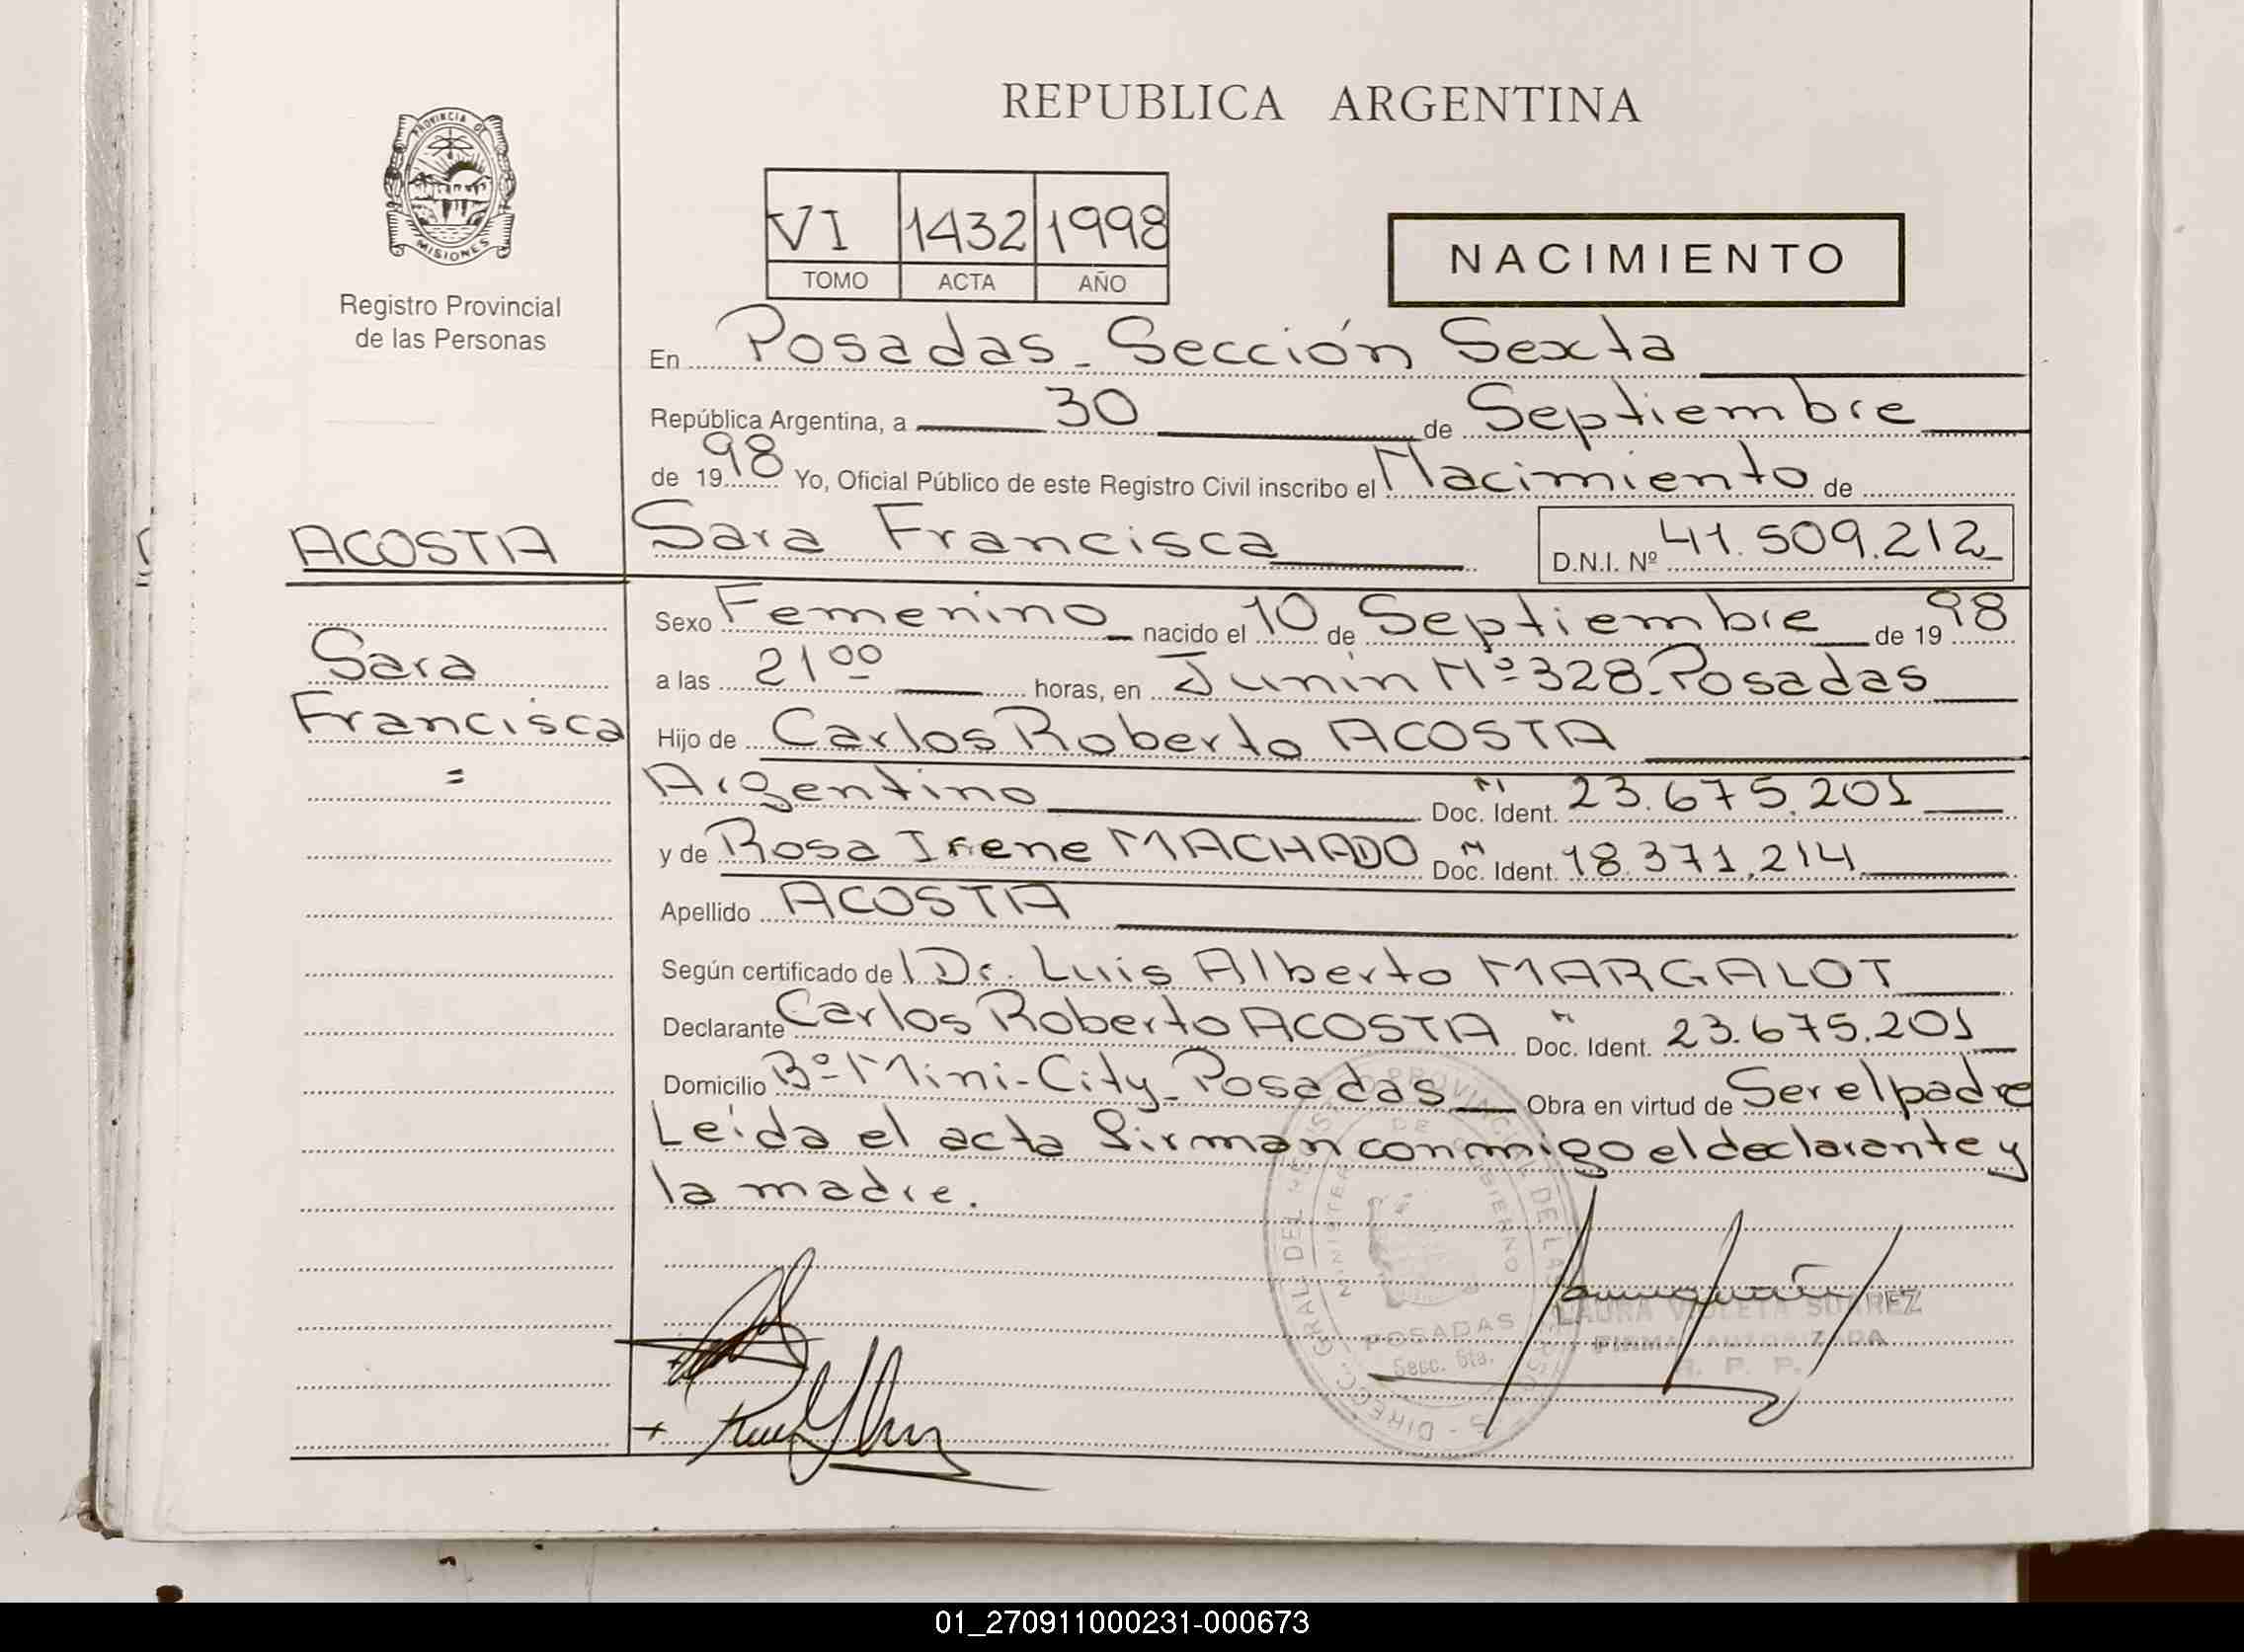 REPUBLICA ARGENTINA
PROVINCIA DE
MISIONES
Registro Provincial
de las Personas
VI 1432 1998
TOMO ACTA AÑO
NACIMIENTO
En Posadas - Sección Sexta
República Argentina, a 30 de Septiembre
de 1998 Yo, Oficial Público de este Registro Civil inscribo el Nacimiento de
ACOSTA Sara Francisca D.N.I. Nº 41.509.212
Sexo Femenino nacido el 10 de Septiembre de 1998
Sara
a las 21 00 horas, en Junin Nº 328 - Posadas
Francisca
Hijo de Carlos Roberto ACOSTA
=
Argentino Doc. Ident. N 23.675.201
y de Rosa Irene MACHADO Doc. Ident. N 18.371.214
Apellido ACOSTA
Según certificado del Dr. Luis Alberto MARGALOT
Declarante Carlos Roberto ACOSTA Doc. Ident. N 23.675.201
Domicilio Bº Mini-City - Posadas Obra en virtud de Ser el padre
Leída el acta firman conmigo el declarante y
la madre.
DIRECC. GRAL DEL REGISTRO PROVINCIAL DE LAS PERSONAS
MINISTERIO DE GOBIERNO
POSADAS
Secc. 6ta.
LAURA VIOLETA SUAREZ
FIRMA AUTORIZADA
R. P. P.
01_270911000231-000673